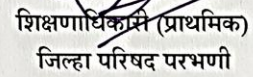 शिक्षणाधिकारी (प्राथमिक)
जिल्हा परिषद परभणी